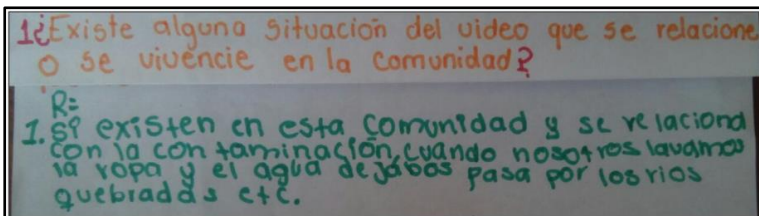 1¿Existe alguna situación del video que se relacione
o se vivencie en la comunidad?
R=
1. Si existen en esta comunidad y se relaciona
con la contaminación, cuando nosotros lavamos
la ropa y el agua de jabos pasa por los rios
quebradas etc.